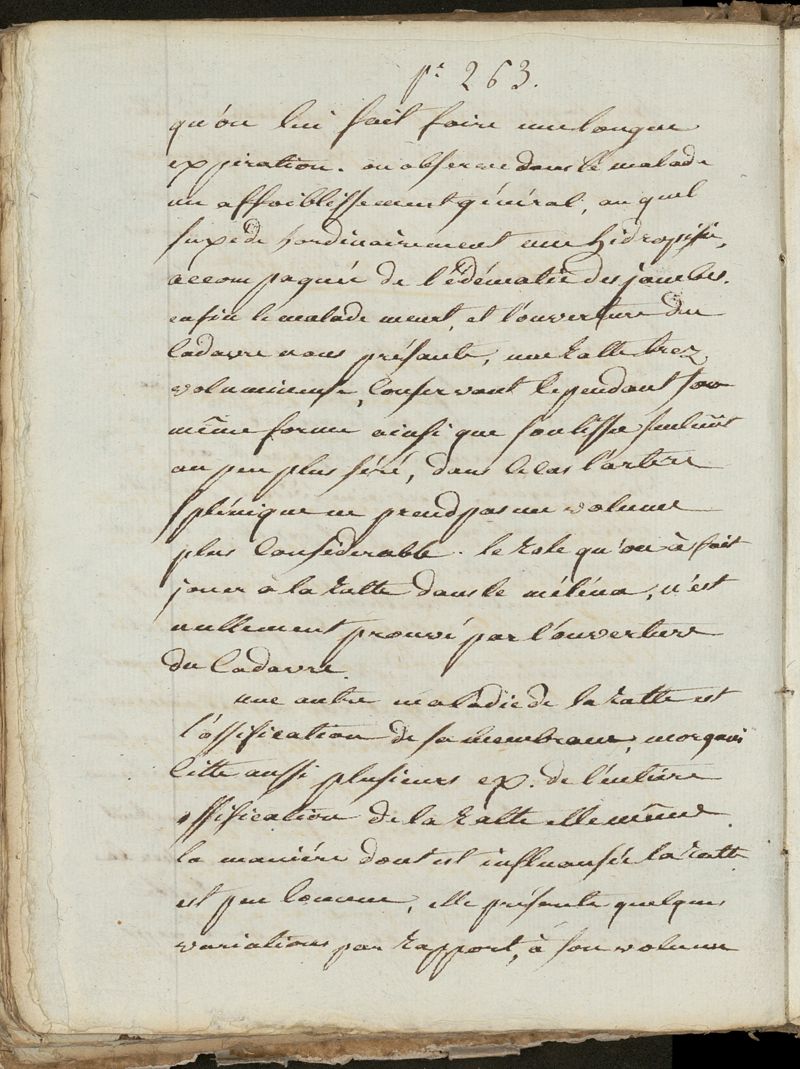 pe. 263.
qu'on lui fait faire une longue
expiration. on observe dans le malade
un affoiblissement général, au quel
suxède hordinairement une hidropisie,
accompagnée de l'édématie des jambes.
enfin le malade meurt, et l'ouverture du
Cadavre nous présante, une ratte trez
volumineuse, Conservant Cependant son
même forme ainsi que son tissu seulemt
un peu plus séré, dans Ce Cas l'artère
splénique ne prend pas un volume
plus Considerable. le role qu'on à fait
jouer à la ratte dans le méléna, n'est
nullement prouvé par l'ouverture
du Cadavre.
une autre maladie de la ratte est
l'ossification de sa membrane, morgani
Citte aussi plusieurs ex. de l'entière
ossification de la ratte elle même.
la manière dont est influansée la ratte
est peu Connue, elle présente quelques
variations par rapport, à son volume